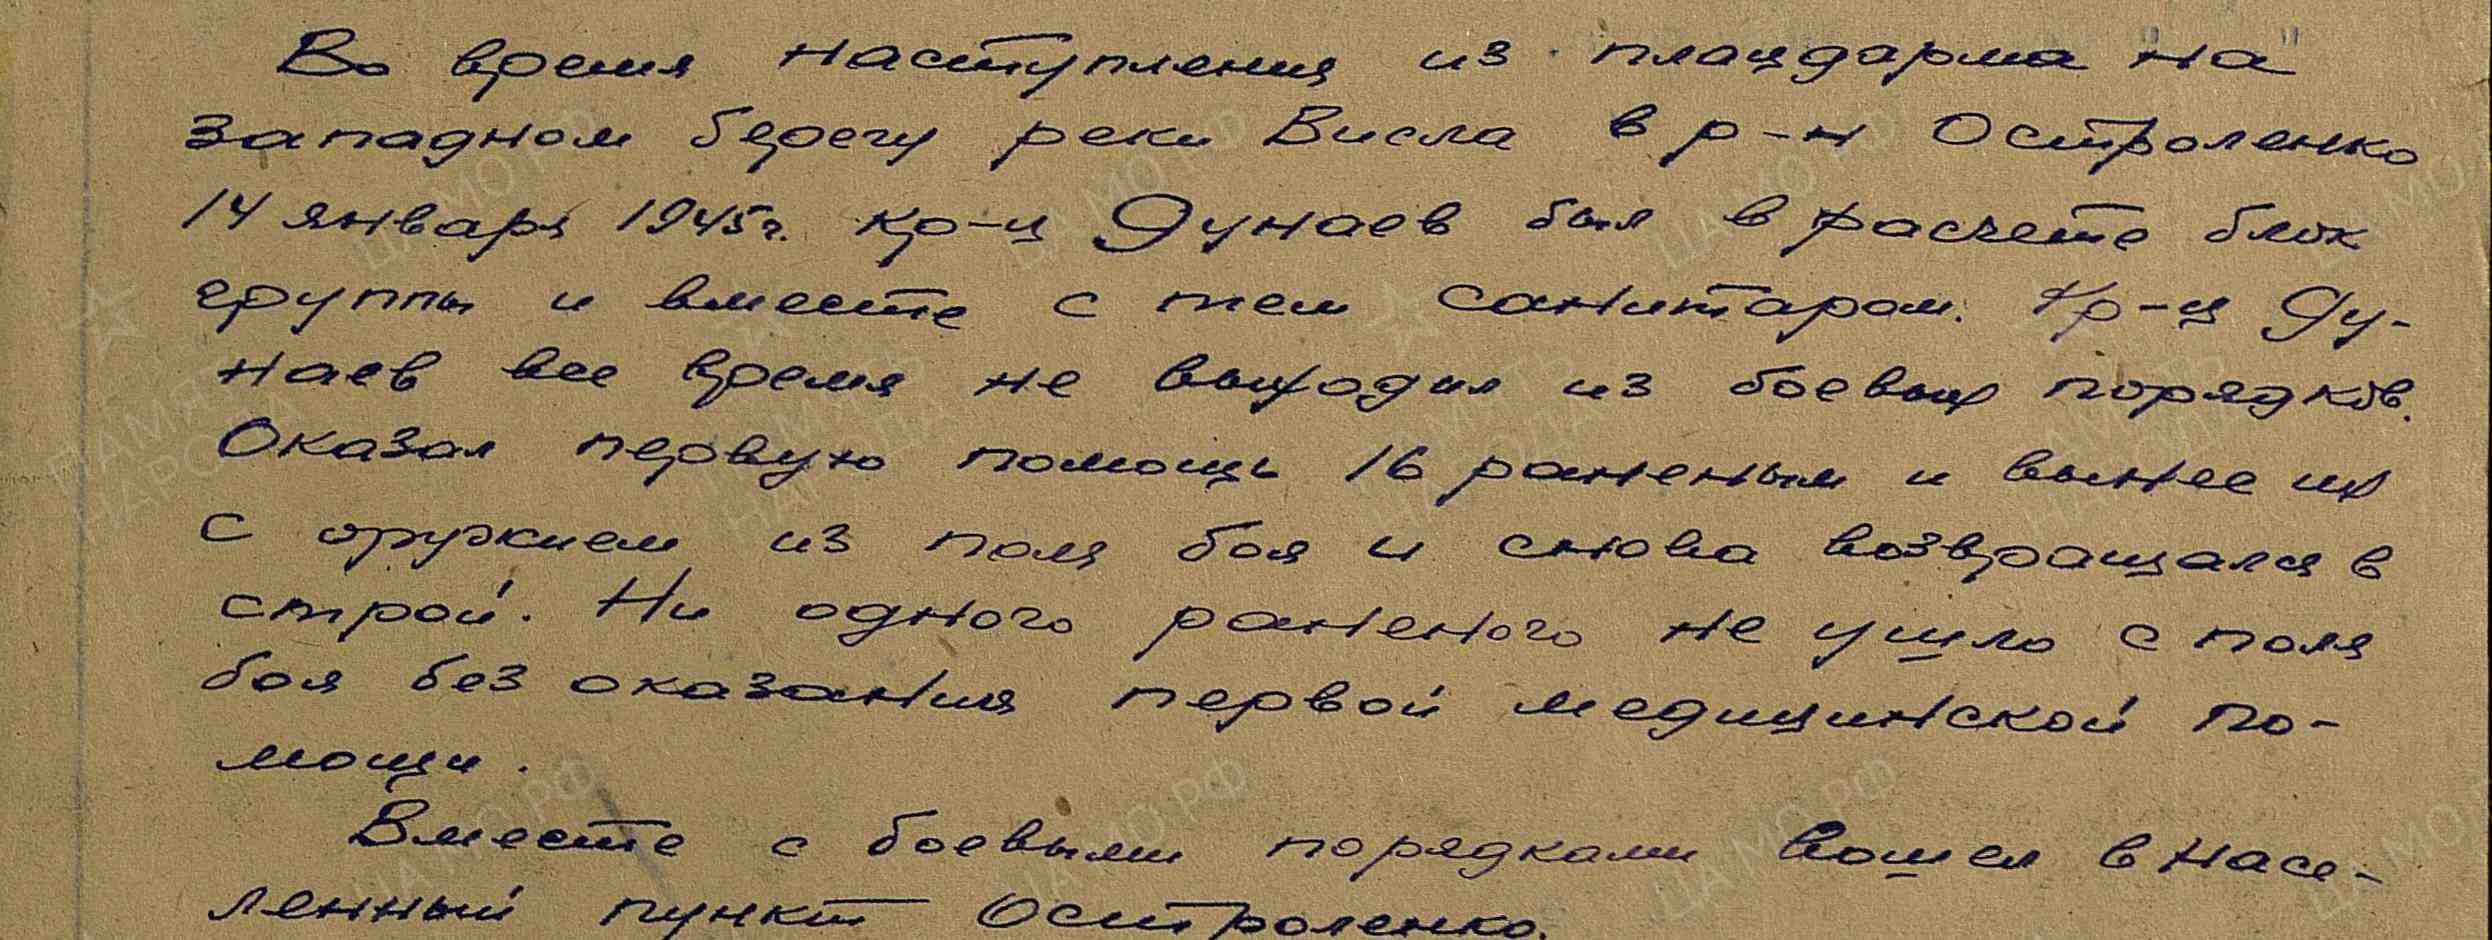 Во время наступления из плацдарма "на"
западном берегу реки Висла в р-н Остроленко
14 января 1945г. кр-ц Дунаев был в расчете блок
группы и вместе с тем санитаром. Кр-ц Ду-
наев все время не выходил из боевых порядков.
Оказал первую помощь 16 раненым и вынес их
с оружием из поля боя и снова возвращался в
строй. Ни одного раненого не ушло с поля
боя без оказания первой медицинской по-
мощи.
Вместе с боевыми порядками вошел в насе-
ленный пункт Остроленко.
ПАМЯТЬ НАРОДА
ЦА МО РФ